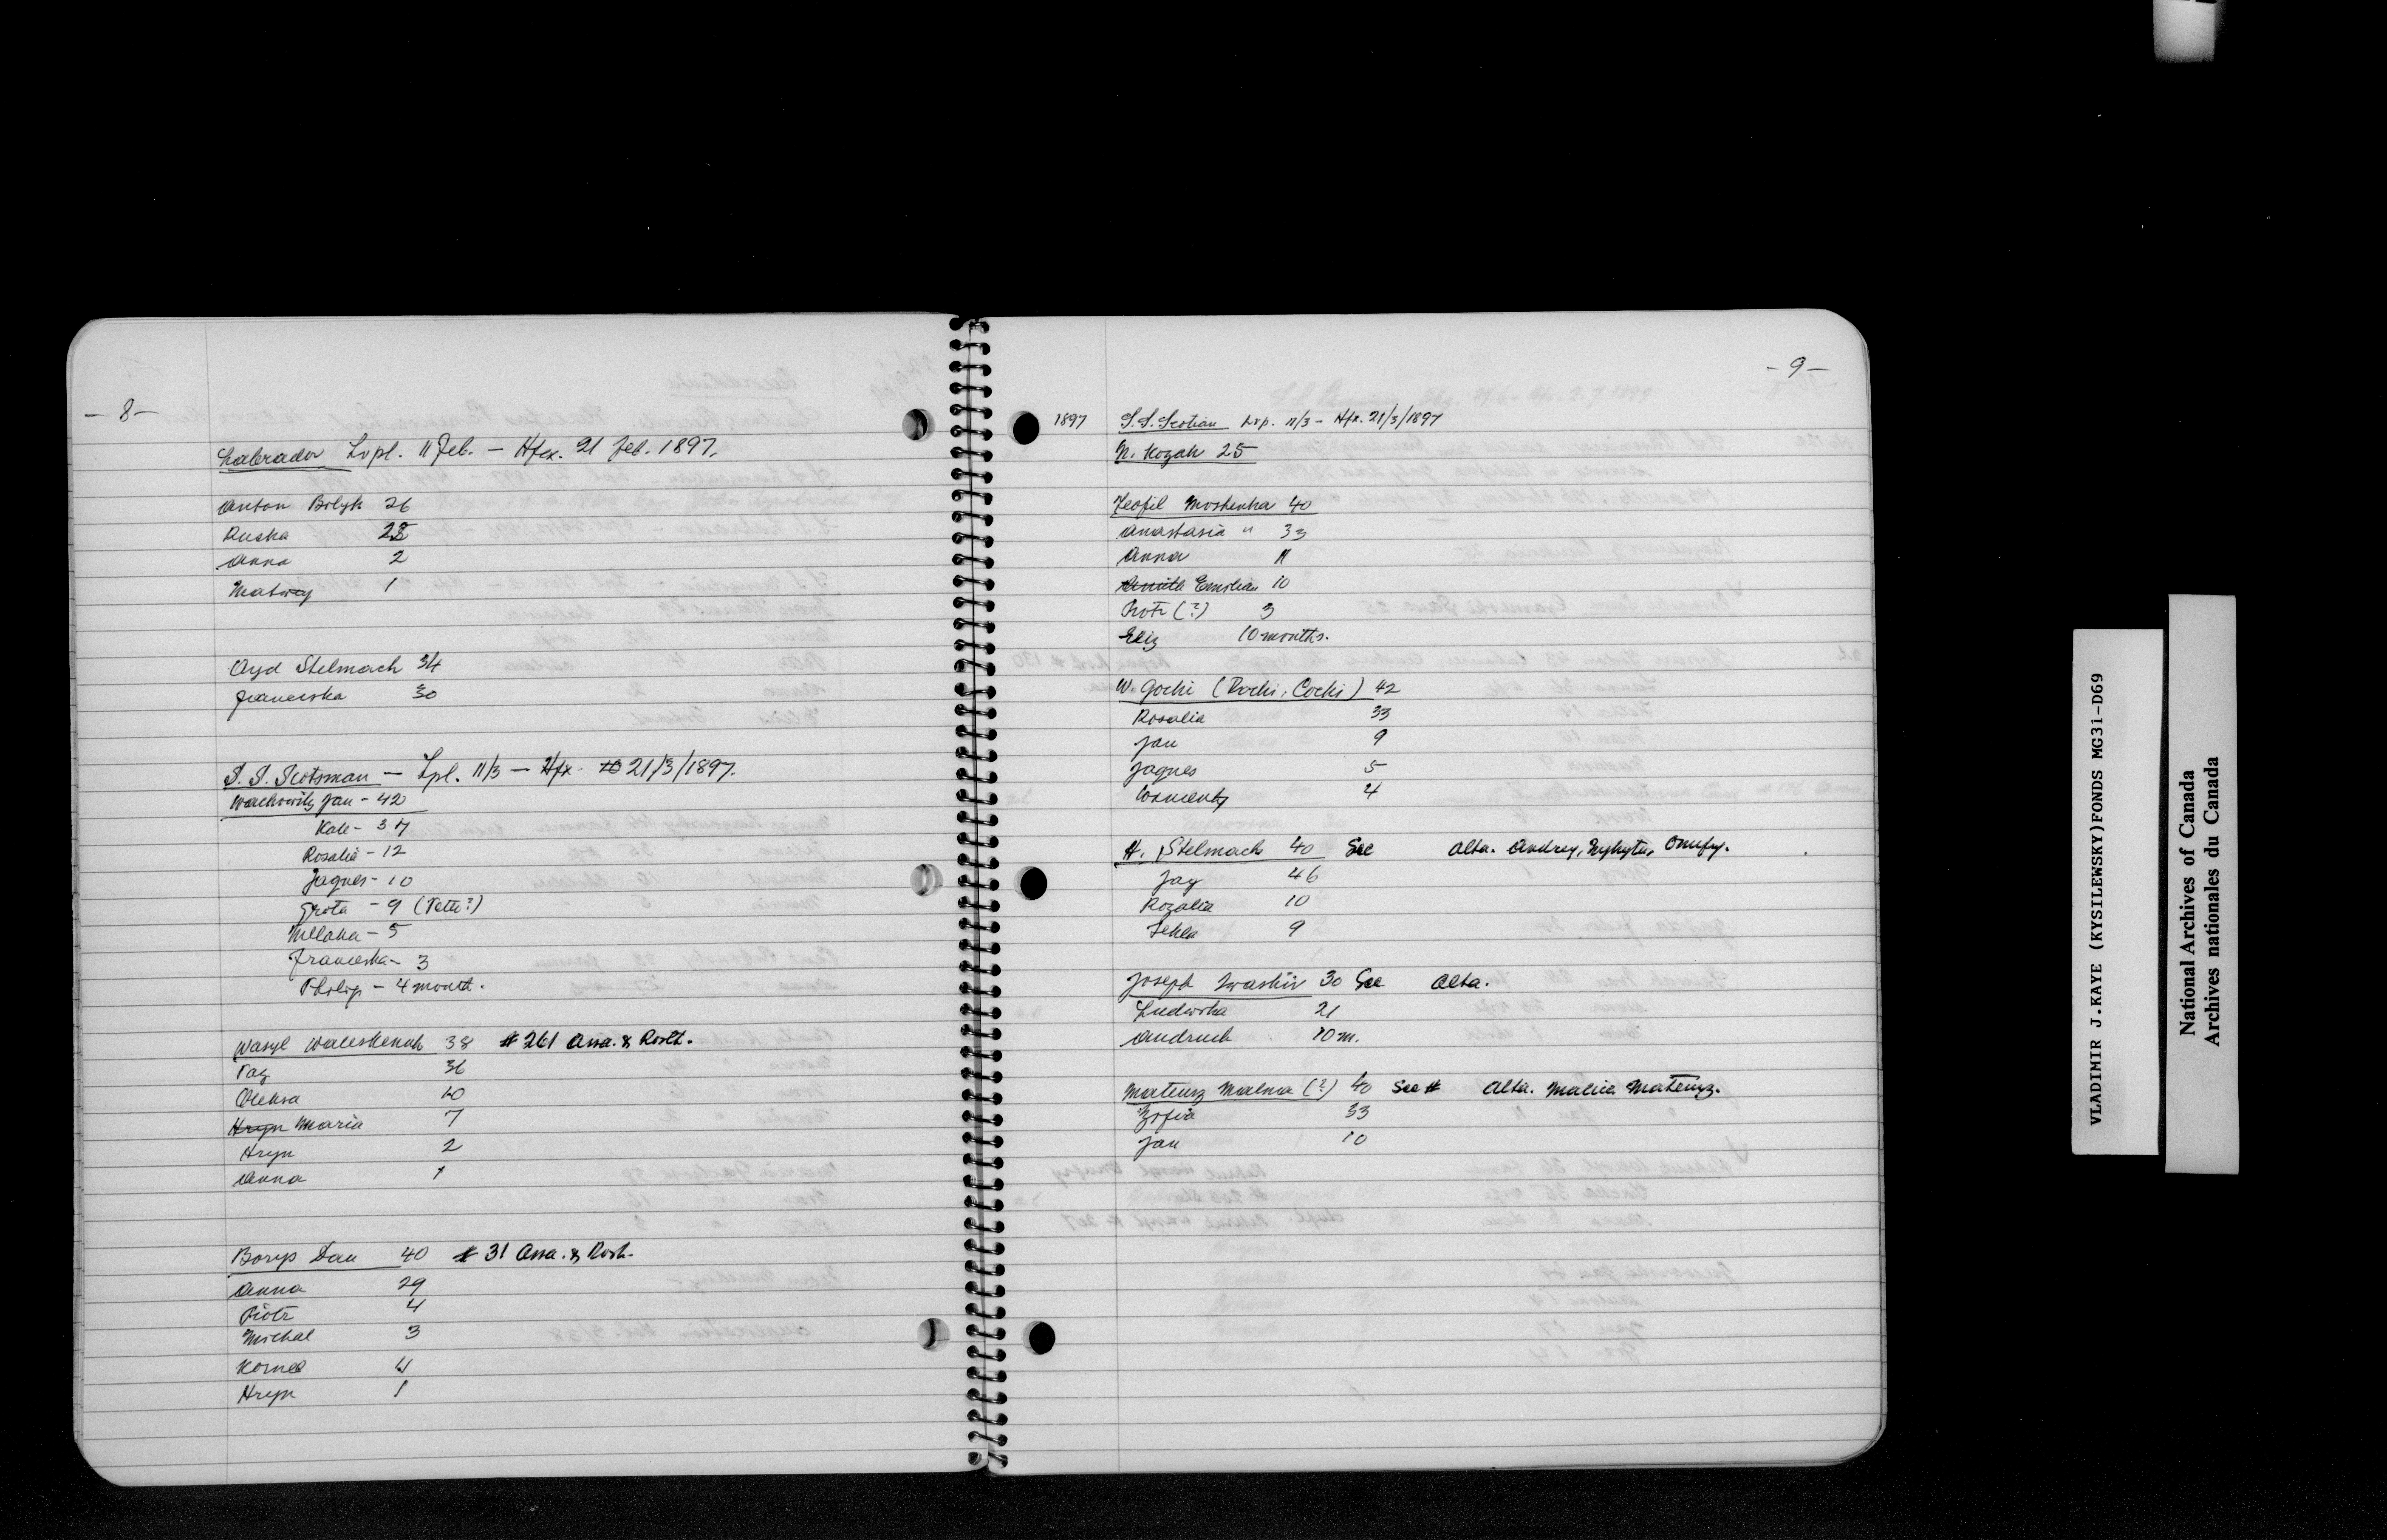 - 8 -
Labrador Lvpl. 11 Feb. - Hfx. 21 Feb. 1897.
Anton Bolyk 26
Ruska 28
Anna 2
Matwey 1
Oryd Stelmach 34
Franciska 30
S.S. Scotsman - Lpl. 11/3 - Hfx. 21/3/1897.
Wachowitz Jan - 42
Kate - 37
Rosalia - 12
Jagnes - 10
Grota - 9 (Petr?)
- 5
Franciska - 3
Philip - 4 month.
Wasyl Waleskenuk 38 # 261 Assa. & Rosth.
Pag 36
Oleksa 10
Hryn Maria 7
Hryn 2
Anna 1
Borys Dan 40 # 31 Assa. & Rosh.
Anna 29
Piotr 4
Michal 3
Kornel 4
Hryn 1
- 9 -
1897 S.S. Scotian Lvp. 11/3 - Hfx. 21/3/1897
N. Kozak 25
Teofil Moskenka 40
Anastasia " 33
Anna 11
Emilian 10
Piotr (?) 3
Eliz 10 months.
W. Gochi (Rochi, Cochi) 42
Rosalia 33
Jan 9
Jagnes 5
4
H. Stelmach 40 See Alta. Andrey, Nykyta, Onufry.
Jag 46
Rozalia 10
Tekla 9
Joseph Iwaskiv 30 See Alta.
Ludwika 21
Andruch 10 m.
Mateusz Malma (?) 40 See # Alta. Malica Mateusz.
Zofia 33
Jan 10
VLADIMIR J.KAYE (KYSILEWSKY)FONDS MG31-D69
National Archives of Canada
Archives nationales du Canada